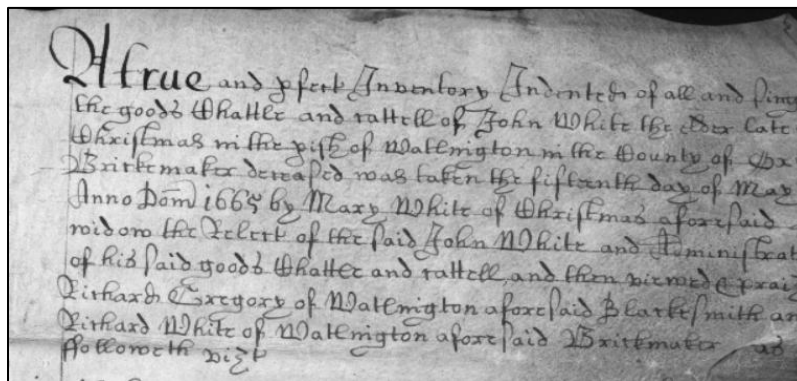 A true and pfect Inventory Indented of all and sing
the goods Chattle and cattell of John White the elder late
Christmas in the pish of Watlington in the County of Ox
Brickemaker deceased was taken the fifteenth day of May
Anno Dom 1665 by Mary White of Christmas aforesaid
widow the Relect of the said John White and Administrat
of his said goods Chattle and cattell, and then viewed & praiz
Richard Gregory of Watlington aforesaid Blackesmith an
Richard White of Watlington aforesaid Brickemaker as
ffolloweth vizt